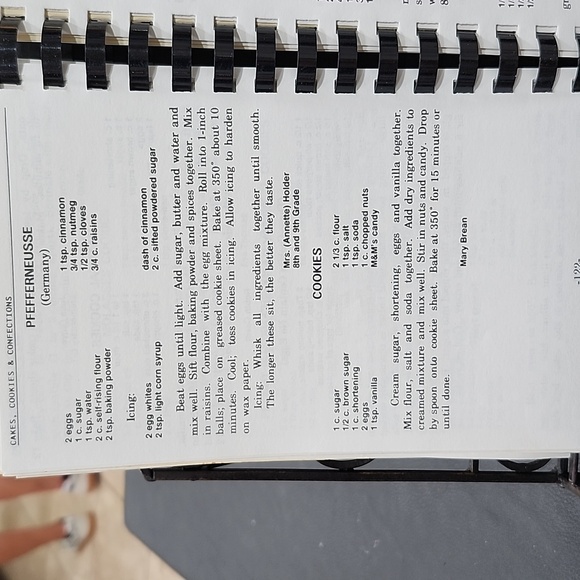 CAKES, COOKIES & CONFECTIONS
PFEFFERNEUSSE
(Germany)
2 eggs
1 c. sugar
1 tsp. water
2 c. self-rising flour
2 tsp. baking powder
1 tsp. cinnamon
3/4 tsp. nutmeg
1/2 tsp. cloves
3/4 c. raisins
Icing:
2 egg whites
2 tsp. light corn syrup
dash of cinnamon
2 c. sifted powdered sugar
Beat eggs until light. Add sugar, butter and water and
mix well. Sift flour, baking powder and spices together. Mix
in raisins. Combine with the egg mixture. Roll into 1-inch
balls; place on greased cookie sheet. Bake at 350° about 10
minutes. Cool; toss cookies in icing. Allow icing to harden
on wax paper.
Icing: Whisk all ingredients together until smooth.
The longer these sit, the better they taste.
Mrs. (Annette) Holder
8th and 9th Grade
COOKIES
1 c. sugar
1/2 c. brown sugar
1 c. shortening
2 eggs
1 tsp. vanilla
2 1/3 c. flour
1 tsp. salt
1 tsp. soda
1 c. chopped nuts
M&M'S candy
Cream sugar, shortening, eggs and vanilla together.
Mix flour, salt and soda together. Add dry ingredients to
creamed mixture and mix well. Stir in nuts and candy. Drop
by spoon onto cookie sheet. Bake at 350° for 15 minutes or
until done.
Mary Brean